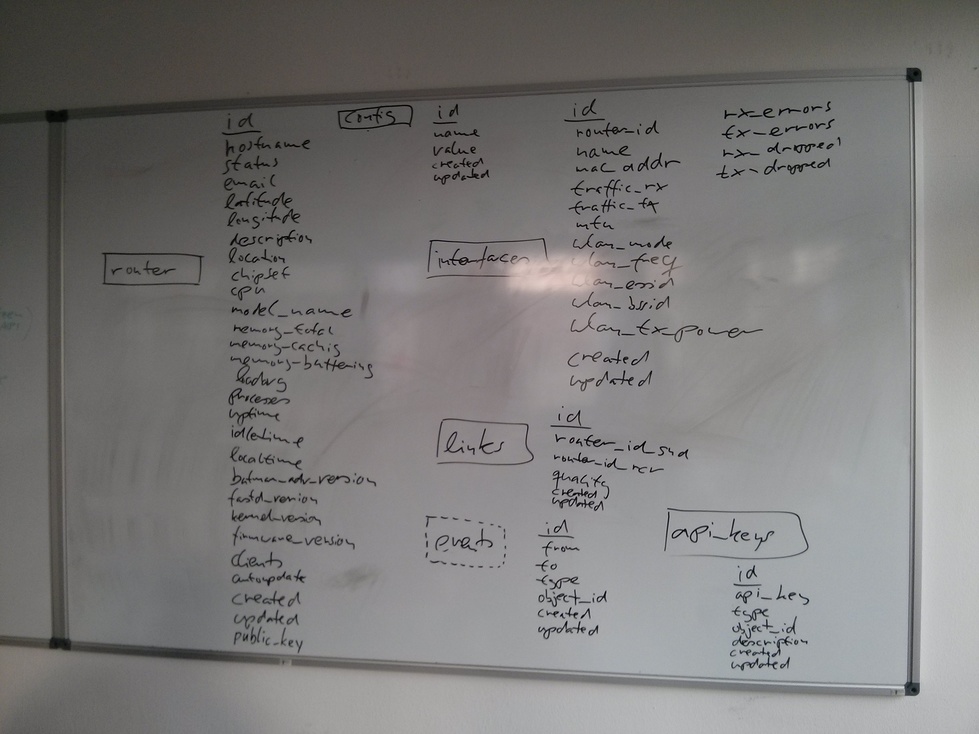 router
id
hostname
status
email
latitude
longitude
description
location
chipset
cpu
model_name
memory_total
memory_caching
memory_buffering
loadavg
processes
uptime
idletime
localtime
batman_adv_version
fastd_version
kernel_version
firmware_version
clients
autoupdate
created
updated
public_key
config
id
name
value
created
updated
interfaces
id
router_id
name
mac_addr
traffic_rx
traffic_tx
mtu
wlan_mode
wlan_freq
wlan_essid
wlan_bssid
wlan_tx_power
created
updated
rx_errors
tx_errors
rx_dropped
tx_dropped
links
id
router_id_snd
router_id_rcv
quality
created
updated
events
id
from
to
type
object_id
created
updated
api_keys
id
api_key
type
object_id
description
created
updated